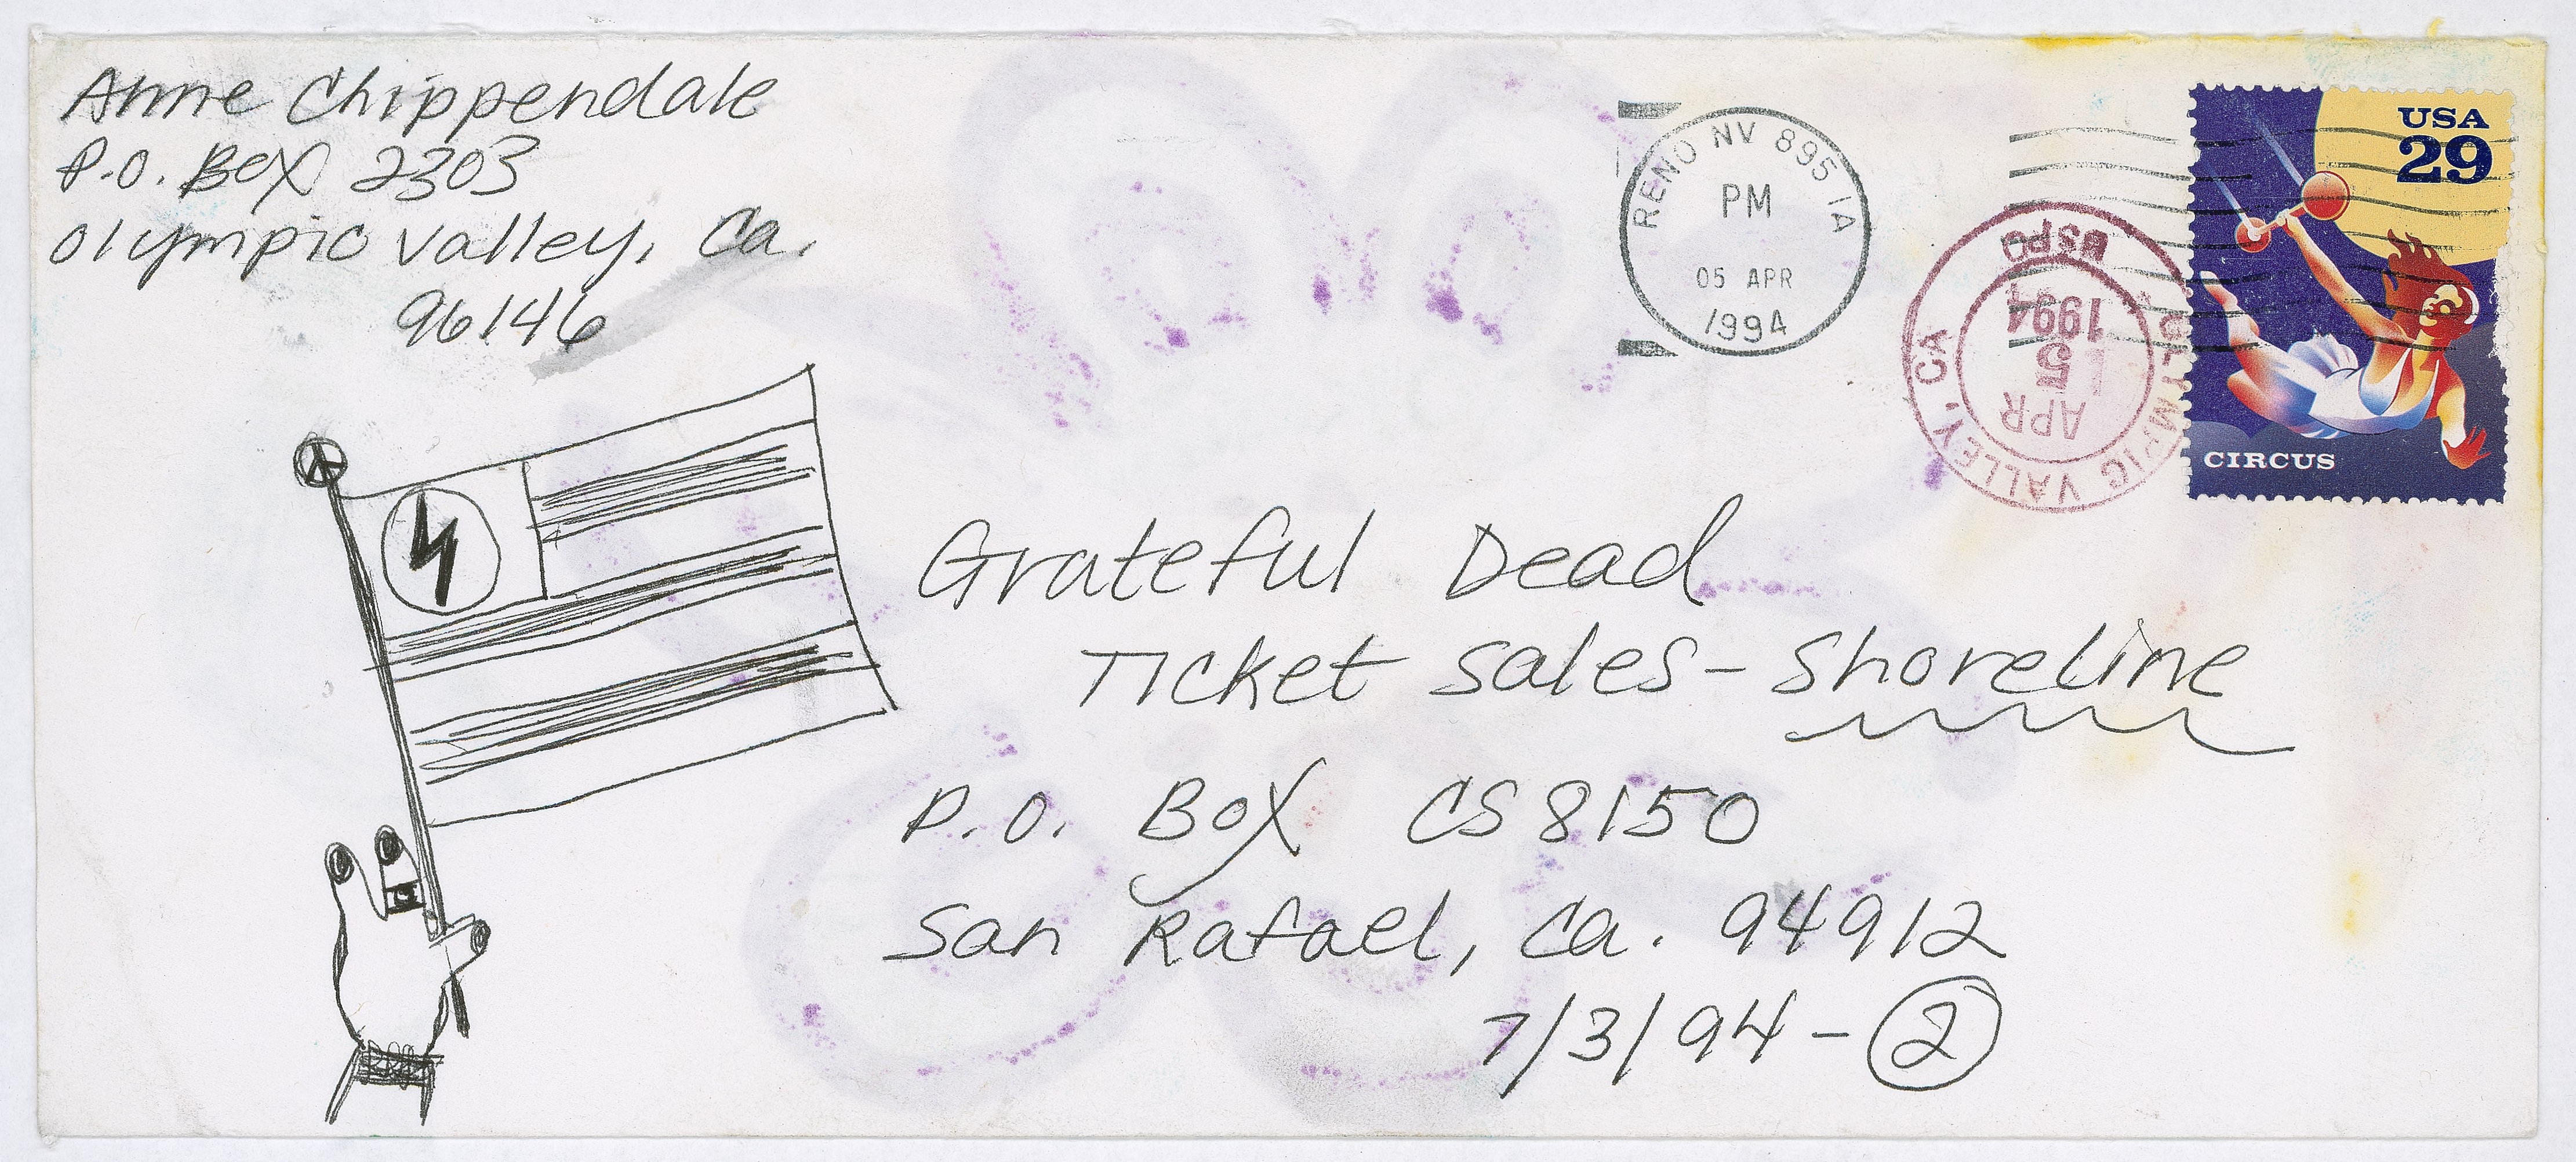 Anne Chippendale
P.O. Box 2303
Olympic Valley, Ca.
96146
RENO NV 895 1A
PM
05 APR
1994
OLYMPIC VALLEY, CA
APR
5
1994
USPO
USA
29
CIRCUS
Grateful Dead
Ticket Sales - Shoreline
P.O. Box CS 8150
San Rafael, Ca. 94912
7/3/94 - 2